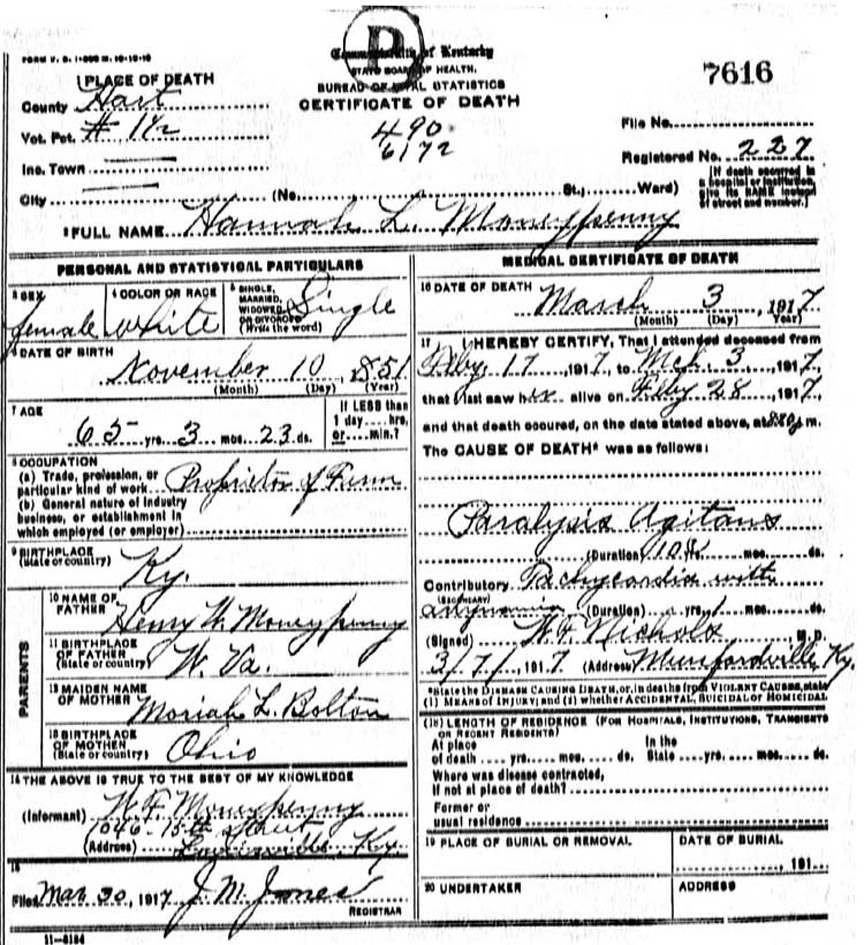 FORM V. S. 1-
D
Commonwealth of Kentucky
STATE BOARD OF HEALTH.
BUREAU OF VITAL STATISTICS
CERTIFICATE OF DEATH
7616
1 PLACE OF DEATH
County Hart
Vot. Pct. # 142
Inc. Town
City (No. St.; Ward)
490
6172
File No.
Registered No. 227
(If death occurred in
a hospital or institution,
give its NAME instead
of street and number.)
2 FULL NAME Hannah L. Moneypenny
PERSONAL AND STATISTICAL PARTICULARS
3 SEX
female
4 COLOR OR RACE
White
5 SINGLE,
MARRIED,
WIDOWED
OR DIVORCED
(Write the word)
Single
6 DATE OF BIRTH
November 10, 1851
(Month) (Day) (Year)
7 AGE
65 yrs. 3 mos. 23 ds.
If LESS than
1 day.... hrs.
or.... min.?
8 OCCUPATION
(a) Trade, profession, or
particular kind of work Proprietor of Farm
(b) General nature of industry
business, or establishment in
which employed (or employer)
9 BIRTHPLACE
(State or country) Ky.
PARENTS
10 NAME OF
FATHER Henry W. Moneypenny
11 BIRTHPLACE
OF FATHER
(State or country) W. Va.
12 MAIDEN NAME
OF MOTHER Moriah L. Bolton
13 BIRTHPLACE
OF MOTHER
(State or country) Ohio
14 THE ABOVE IS TRUE TO THE BEST OF MY KNOWLEDGE
(Informant) W. F. Moneypenny
1046-15th Street
(Address) Louisville, Ky.
15
Filed Mar 30, 1917 J. M. Jones
REGISTRAR
11-8184
MEDICAL CERTIFICATE OF DEATH
16 DATE OF DEATH
March 3, 1917
(Month) (Day) (Year)
17 I HEREBY CERTIFY, That I attended deceased from
Feby. 17, 1917, to Mch. 3, 1917,
that I last saw her alive on Feby 28, 1917,
and that death occured, on the date stated above, at m.
The CAUSE OF DEATH* was as follows:
Paralysis Agitans
(Duration) 10 mos. ds.
Contributory Tachycardia with
(SECONDARY)
(Duration) yrs. 1 mos. ds.
(Signed) W. F. Nichols, M. D.
3/7/, 1917 (Address) Munfordville, Ky.
*State the DISEASE CAUSING DEATH, or, in deaths from VIOLENT CAUSES, state
(1) MEANS OF INJURY; and (2) whether ACCIDENTAL, SUICIDAL OR HOMICIDAL
(18) LENGTH OF RESIDENCE (FOR HOSPITALS, INSTITUTIONS, TRANSIENTS
OR RECENT RESIDENTS)
At place In the
of death.... yrs.... mos.... ds. State.... yrs.... mos.... ds.
Where was disease contracted,
if not at place of death?
Former or
usual residence
19 PLACE OF BURIAL OR REMOVAL
DATE OF BURIAL
, 191
20 UNDERTAKER
ADDRESS